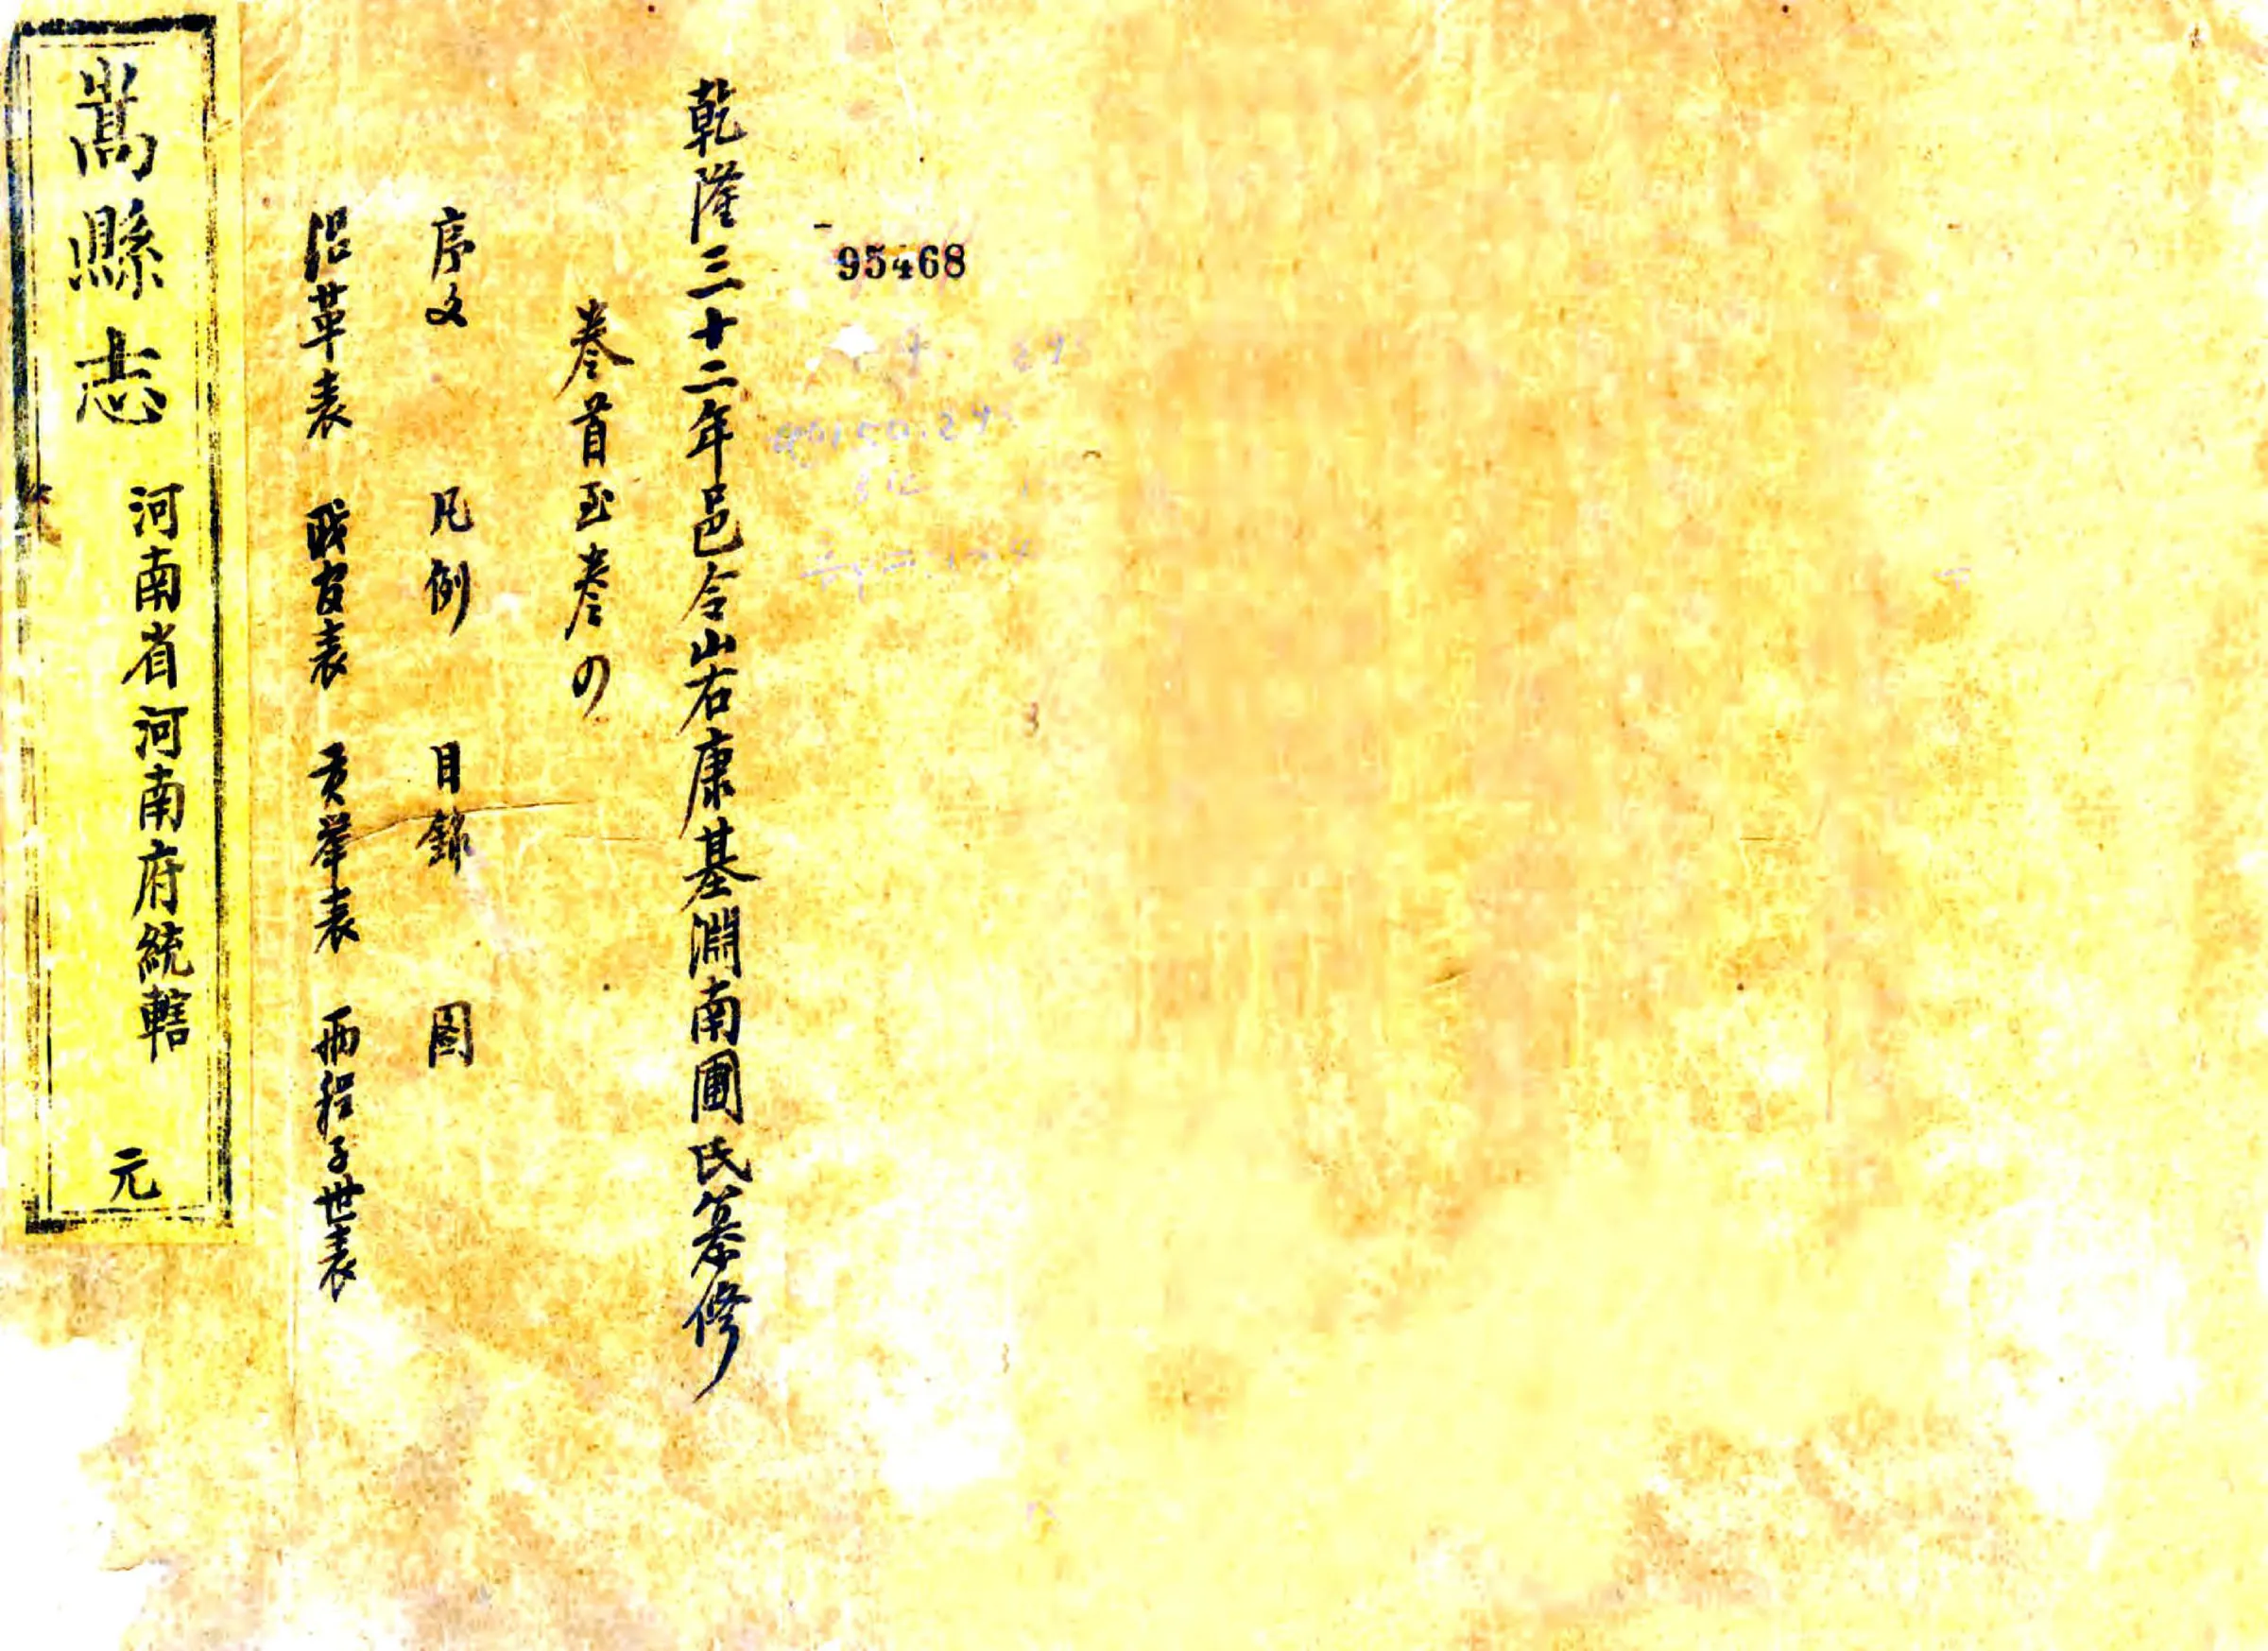 95468
乾隆三十二年邑令山右康基淵南圃氏篡修
卷首至卷四
序文 凡例 目錄 图
沿革表 職官表 貢舉表 兩程子世表
嵩縣志 河南省河南府統轄 元